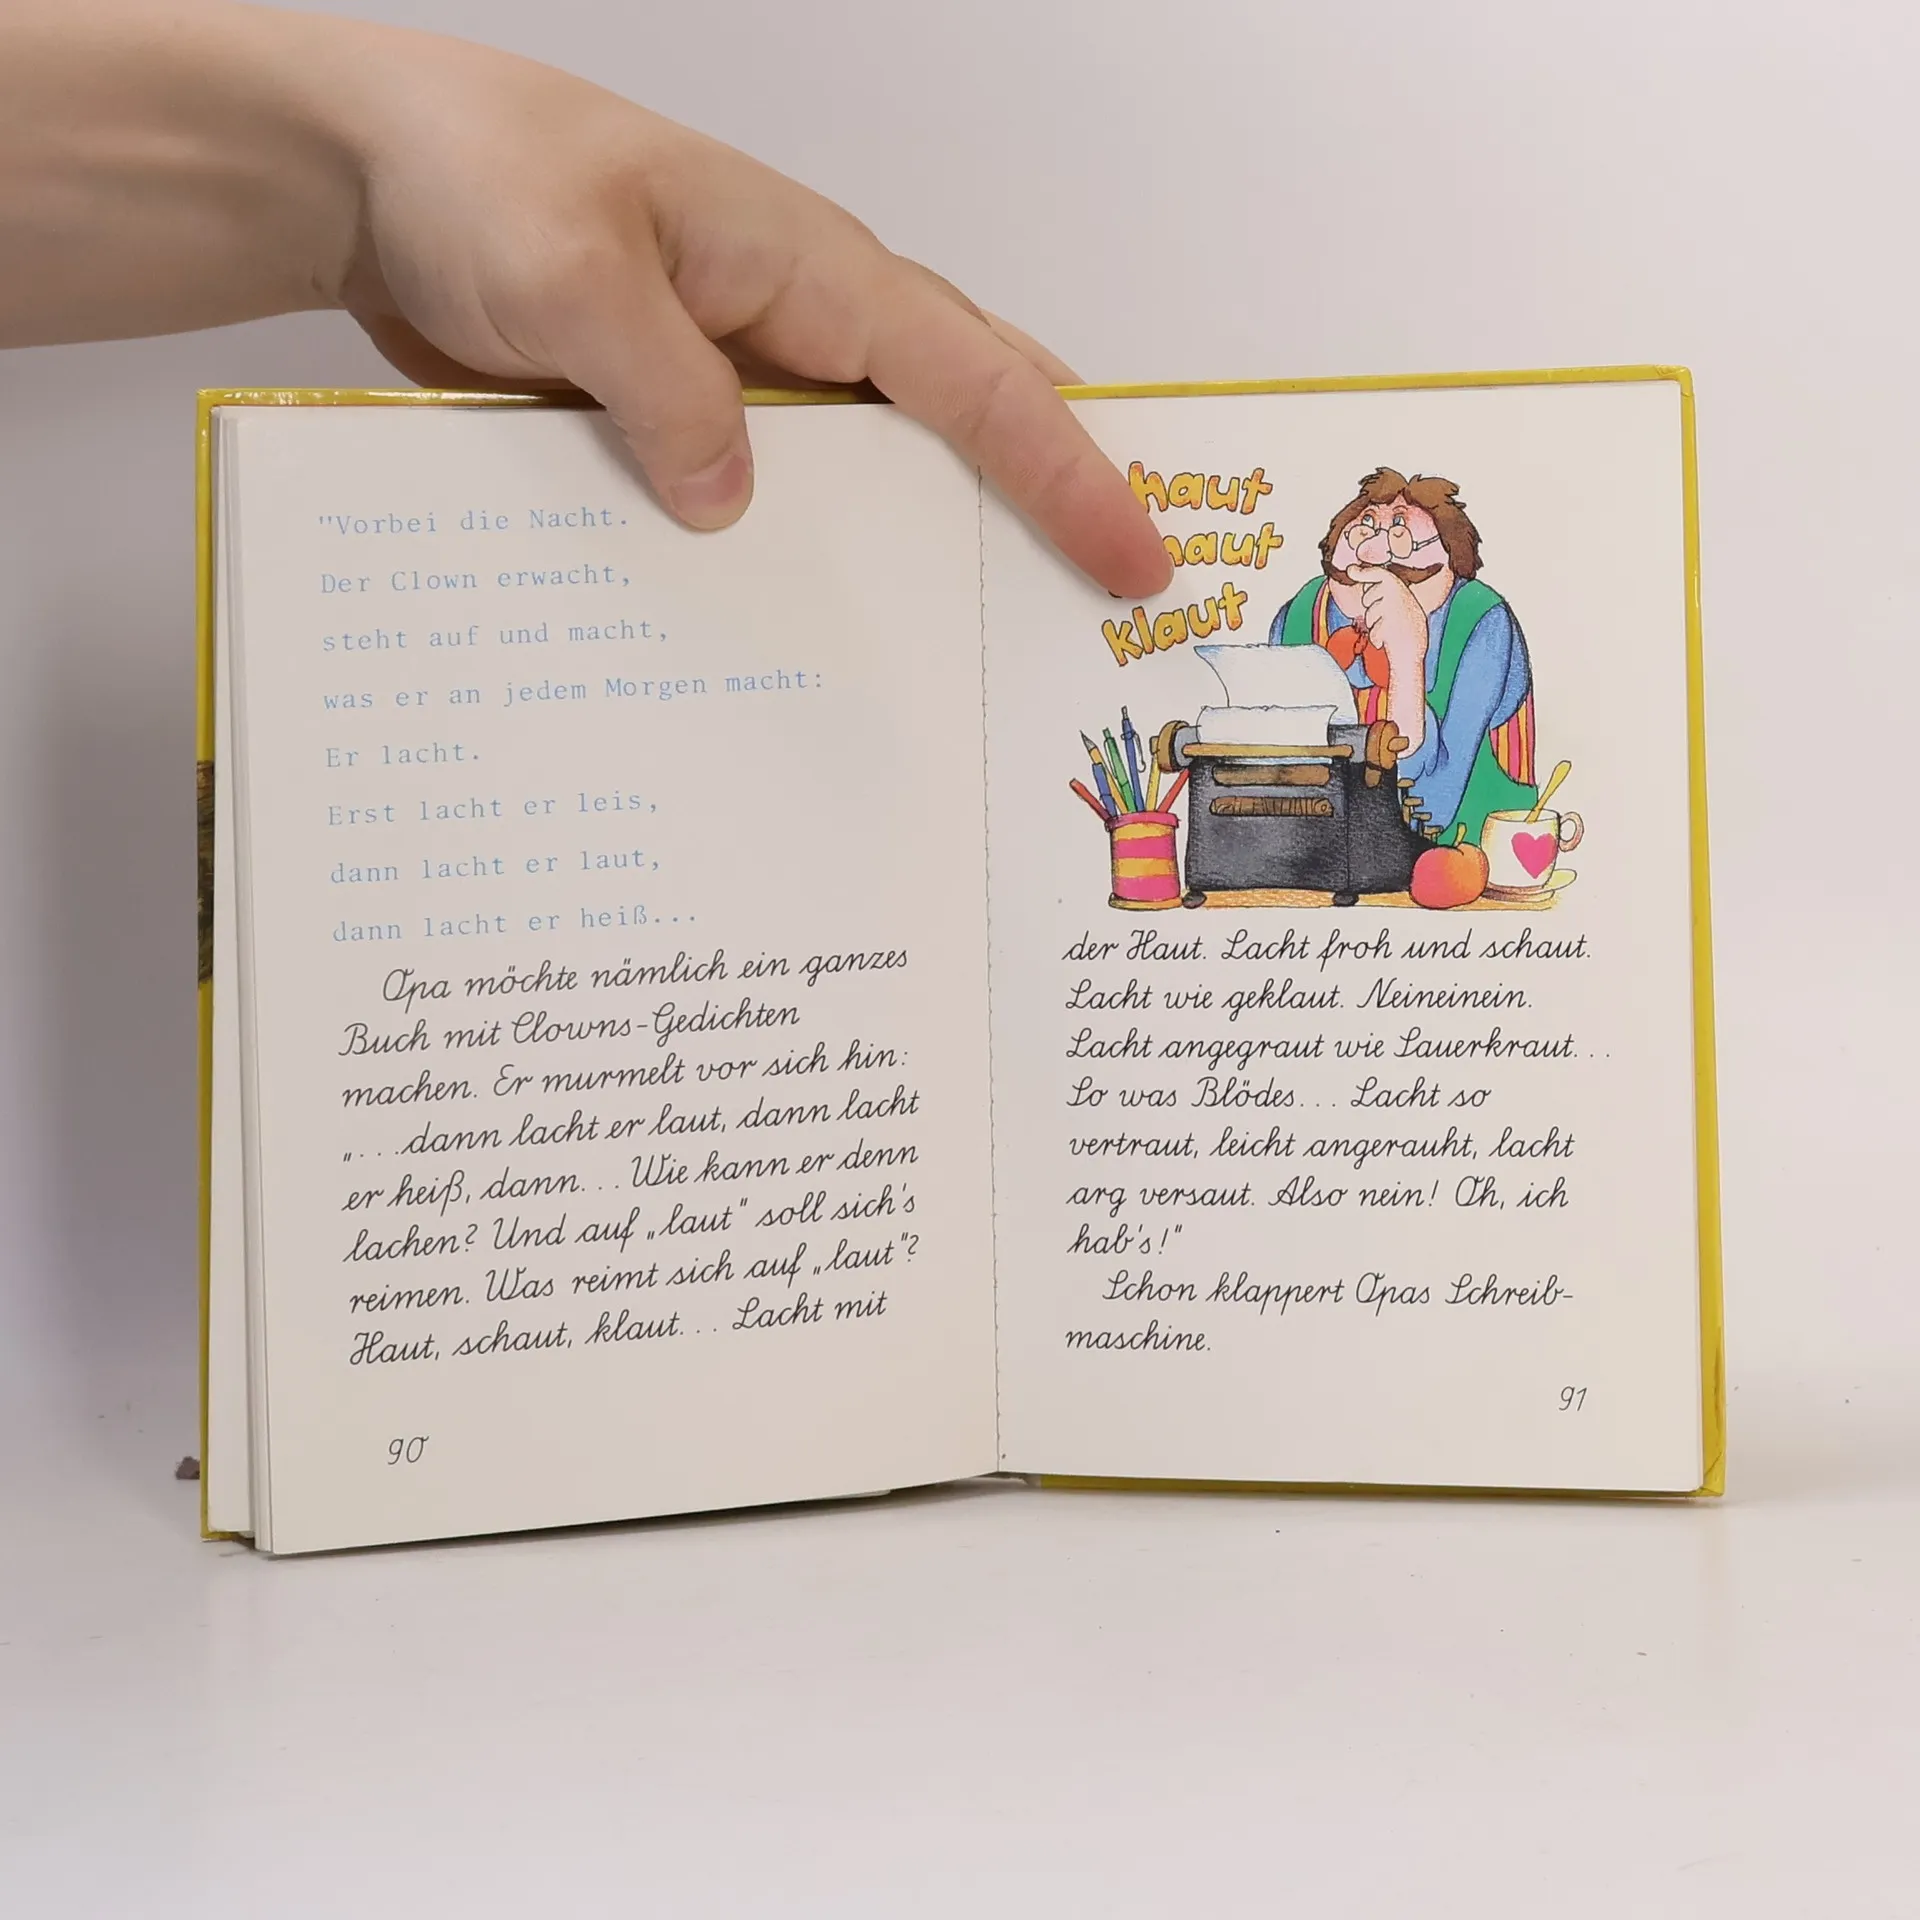 "Vorbei die Nacht.
Der Clown erwacht,
steht auf und macht,
was er an jedem Morgen macht:
Er lacht.
Erst lacht er leis,
dann lacht er laut,
dann lacht er heiß...
Opa möchte nämlich ein ganzes
Buch mit Clowns-Gedichten
machen. Er murmelt vor sich hin:
„...dann lacht er laut, dann lacht
er heiß, dann... Wie kann er denn
lachen? Und auf „laut" soll sich's
reimen. Was reimt sich auf „laut"?
Haut, schaut, klaut... Lacht mit
90
haut
klaut
der Haut. Lacht froh und schaut.
Lacht wie geklaut. Neineinein.
Lacht angegraut wie Sauerkraut...
So was Blödes... Lacht so
vertraut, leicht angerauht, lacht
arg versaut. Also nein! Oh, ich
hab's!"
Schon klappert Opas Schreib-
maschine.
91